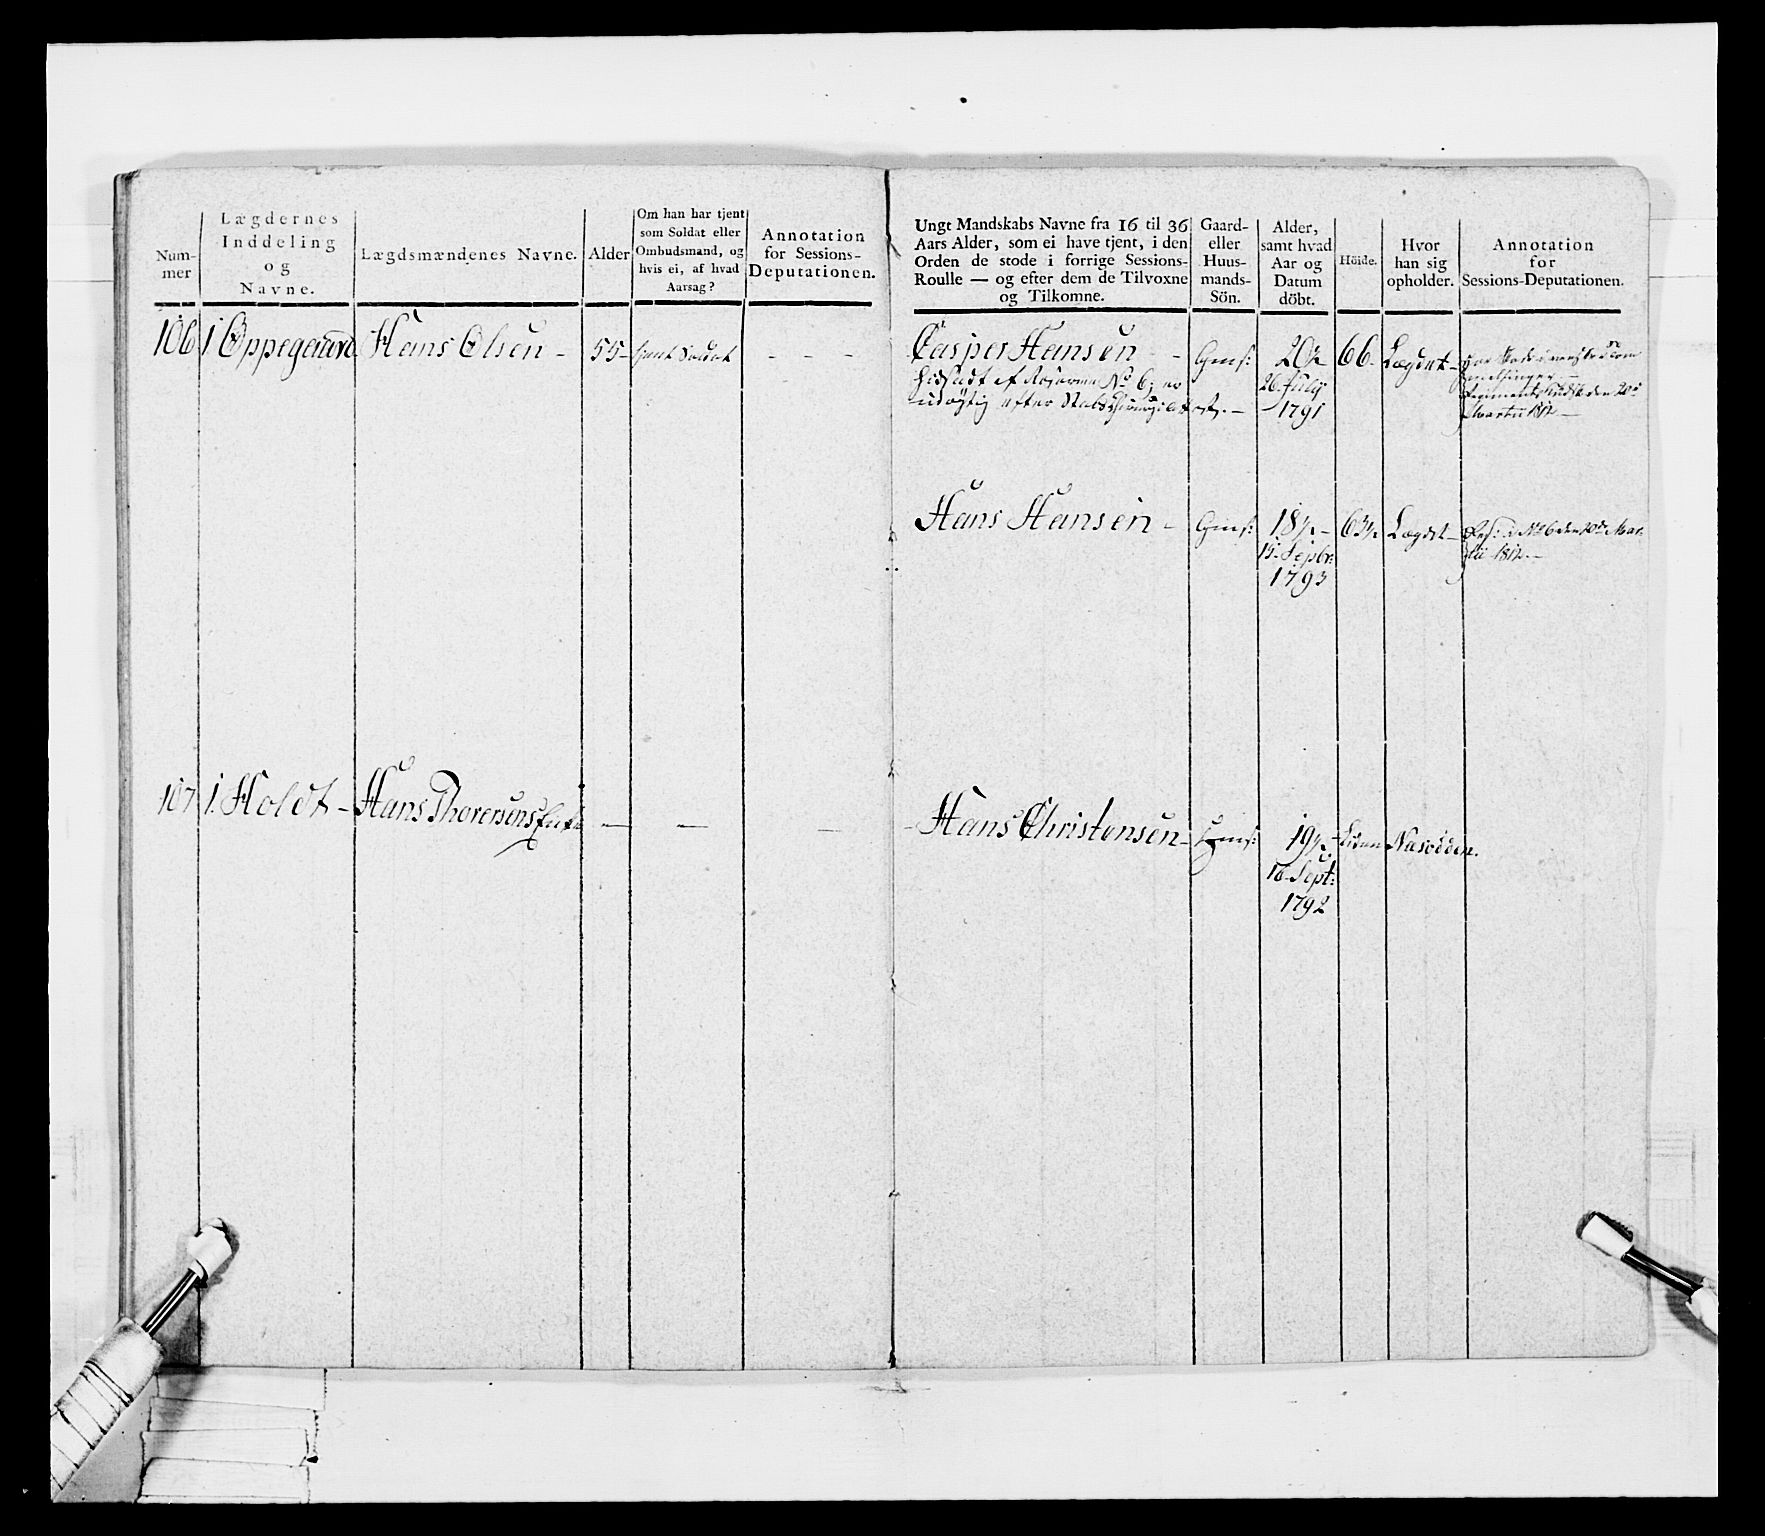 Num-
mer
Lægdernes
Inddeling
og
Navne.
Lægdsmændenes Navne.
Alder
Om han har tjent
som Soldat eller
Ombudsmand, og
hvis ei, af hvad
Aarsag?
Annotation
for Sessions-
Deputationen.
106
1 Oppegaard
Hans Olsen -
55 -
tjent Soldat
- - -
107
1. Holdt -
Hans Thoresens Enke
—
—
—
Ungt Mandskabs Navne fra 16 til 36
Aars Alder, som ei have tjent, i den
Orden de stode i forrige Sessions-
Roulle — og efter dem de Tilvoxne
og Tilkomne.
Gaard-
eller
Huus-
mands-
Sön.
Alder,
samt hvad
Aar og
Datum
döbt.
Höide.
Hvor
han sig
opholder.
Annotation
for
Sessions-Deputationen.
Casper Hansen -
No 6; er
udygtig efter
Gms:
20½
26 July
1791
66.
Lægdet -
den 20de
Martii 1812 —
Hans Hansen -
Gms:
18½ -
15 Sepbr:
1793
63½
Lægdet -
No 6 den 20de Mar-
tii 1812. -
- Hans Christensen -
Gms:
19½ -
16 Sept:
1792
Liten
Næsodden.